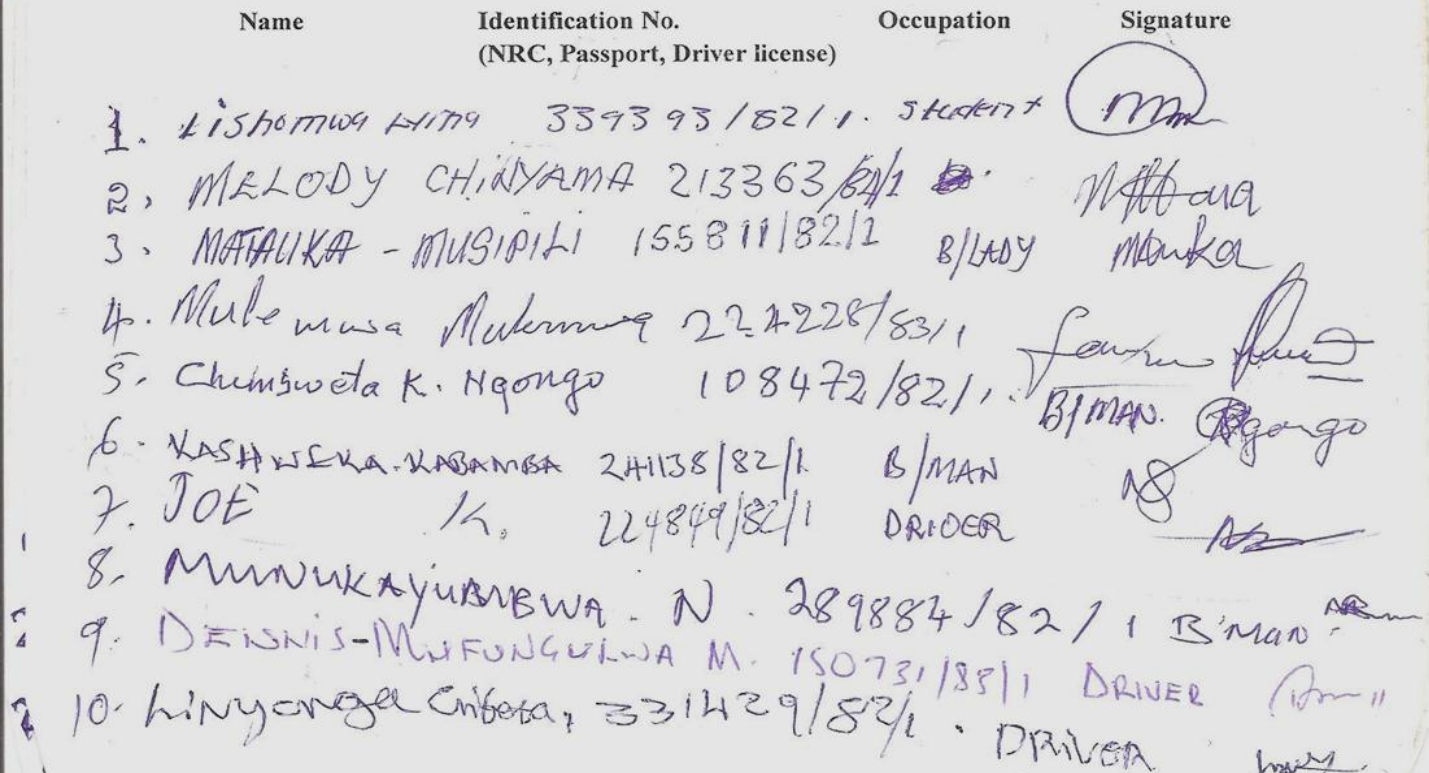 Name Identification No. Occupation Signature
(NRC, Passport, Driver license)
1. Lishomwa 339393/82/1. Student
2. MELODY CHINYAMA 213363/82/1
3. MATALIKA - MUSIPILI 155811/82/1 B/LADY
4. Mulemwa 224228/83/1
5. Chimbweta K. Ngongo 108472/82/1. B/MAN. Ngongo
6. KASHWEKA.KABAMBA 241138/82/1. B/MAN
7. JOE K. 224849/82/1 DRIOER
8. MUNUKAYUBUBWA. N. 289884/82/1 B'MAN
9. DENNIS-MUFUNGULWA M. 150731/83/1 DRIVER
10. Linyonga 331429/82/1. DRIVER